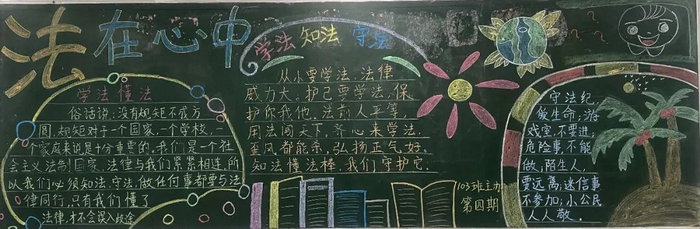 法在心中
学法懂法
俗话说:没有规矩不成方
圆,规矩对于一个国家、一个学校、一
个家庭来说是十分重要的,我们是一个社
会主义法制国家,法律与我们紧紧相连,所
以我们必须知法、守法,做任何事都要与法
律同行,只有我们懂了
法律,才不会误入歧途
学法 知法 守法
从小要学法,法律
威力大。护己要学法,保
护你我他。法前人平等,
用法闯天下。齐心来学法,
歪风都能杀。弘扬正气好,
知法懂法棒。我们守护它
103班主办
第四期
守法纪,
爱生命;游
戏室,不要进;
危险事,不能
做;陌生人,
要远离;迷信事
不参加;小公民
人人敬。